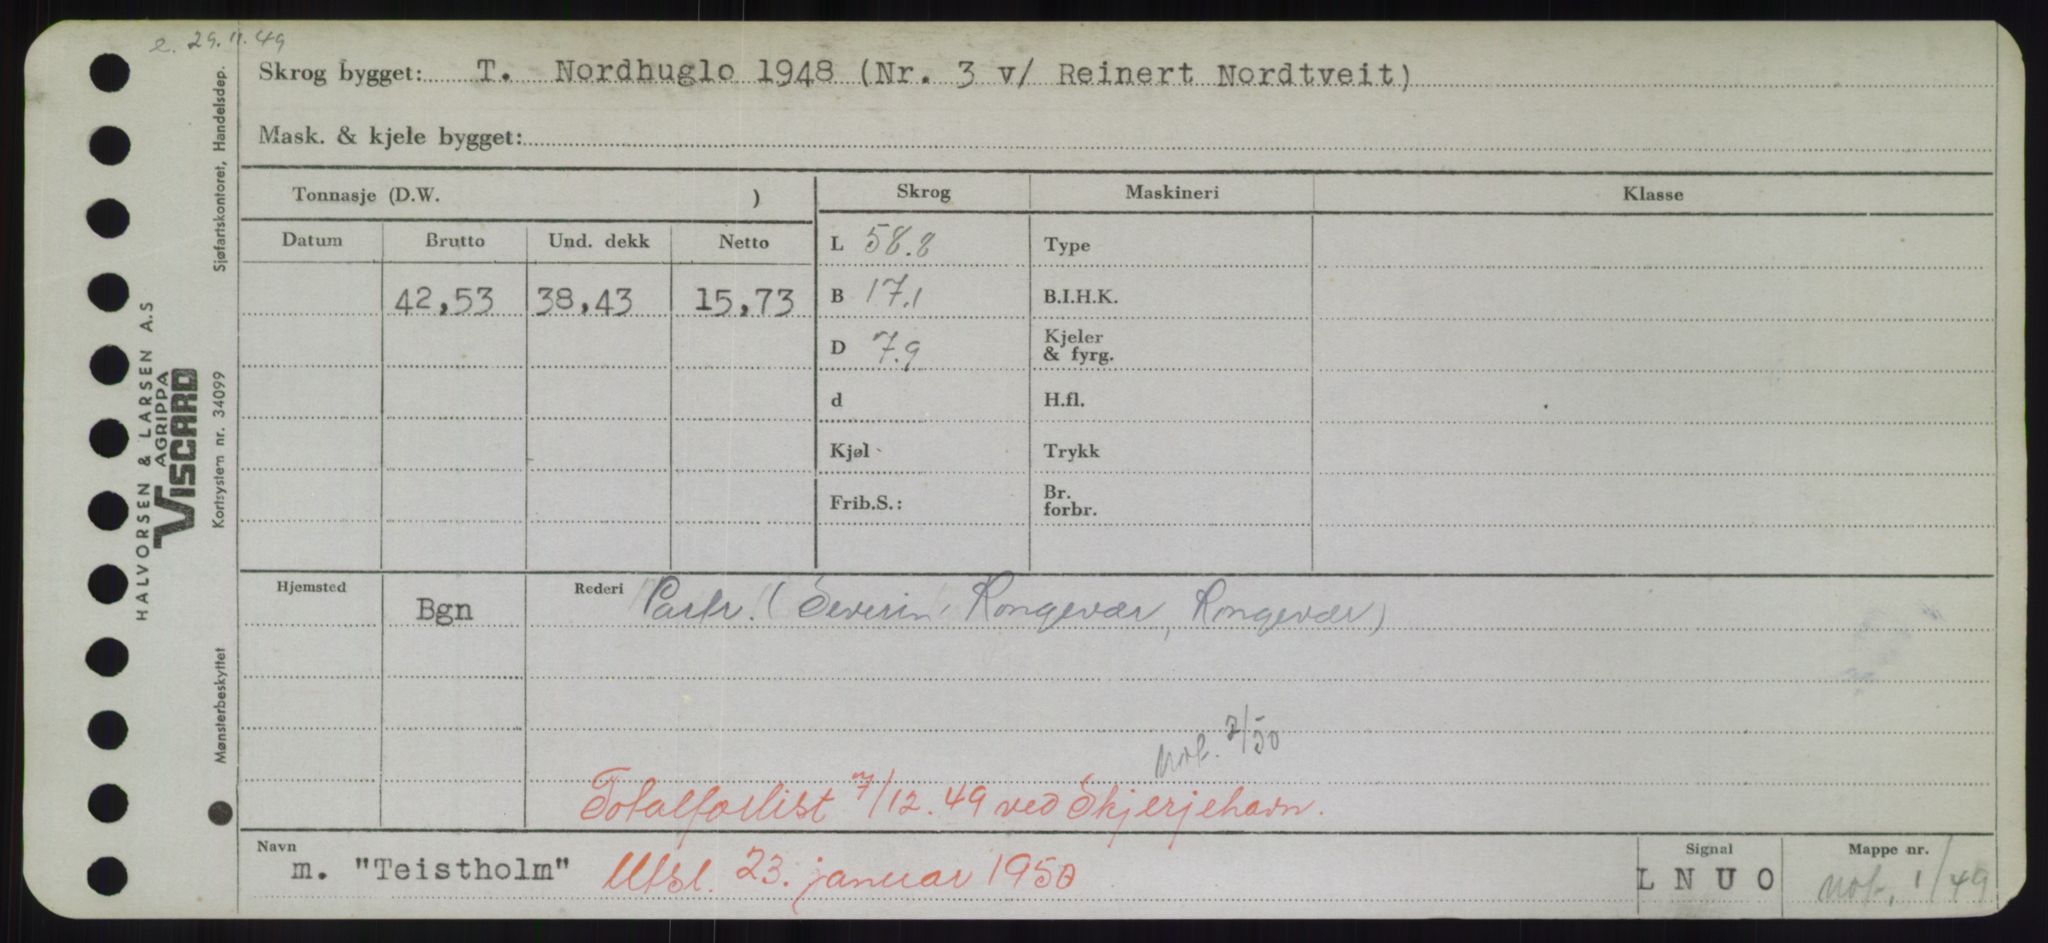 e. 29.11.49
Skrog bygget: T. Nordhuglo 1948 (Nr. 3 v/ Reinert Nordtveit)
Mask. & kjele bygget:
Tonnasje (D.W. )
Skrog Maskineri Klasse
Datum Brutto Und. dekk Netto
L 58.8 Type
42,53 38,43 15,73
B 17.1 B.I.H.K.
D 7.9 Kjeler & fyrg.
d H.fl.
Kjøl Trykk
Frib.S.: Br. forbr.
Hjemsted Bgn Rederi Partr. (Severin Rongevær, Rongevær)
Not. 2/50
Totalforlist 7/12.49 ved Skjerjehavn.
Navn m. "Teistholm" Utsl. 23. januar 1950
Signal L N U O
Mappe nr. Not. 1/49
HALVORSEN & LARSEN A.S
AGRIPPA
VISCARD
Sjøfartskontoret, Handelsdep.
Kortsystem nr. 34099
Mønsterbeskyttet